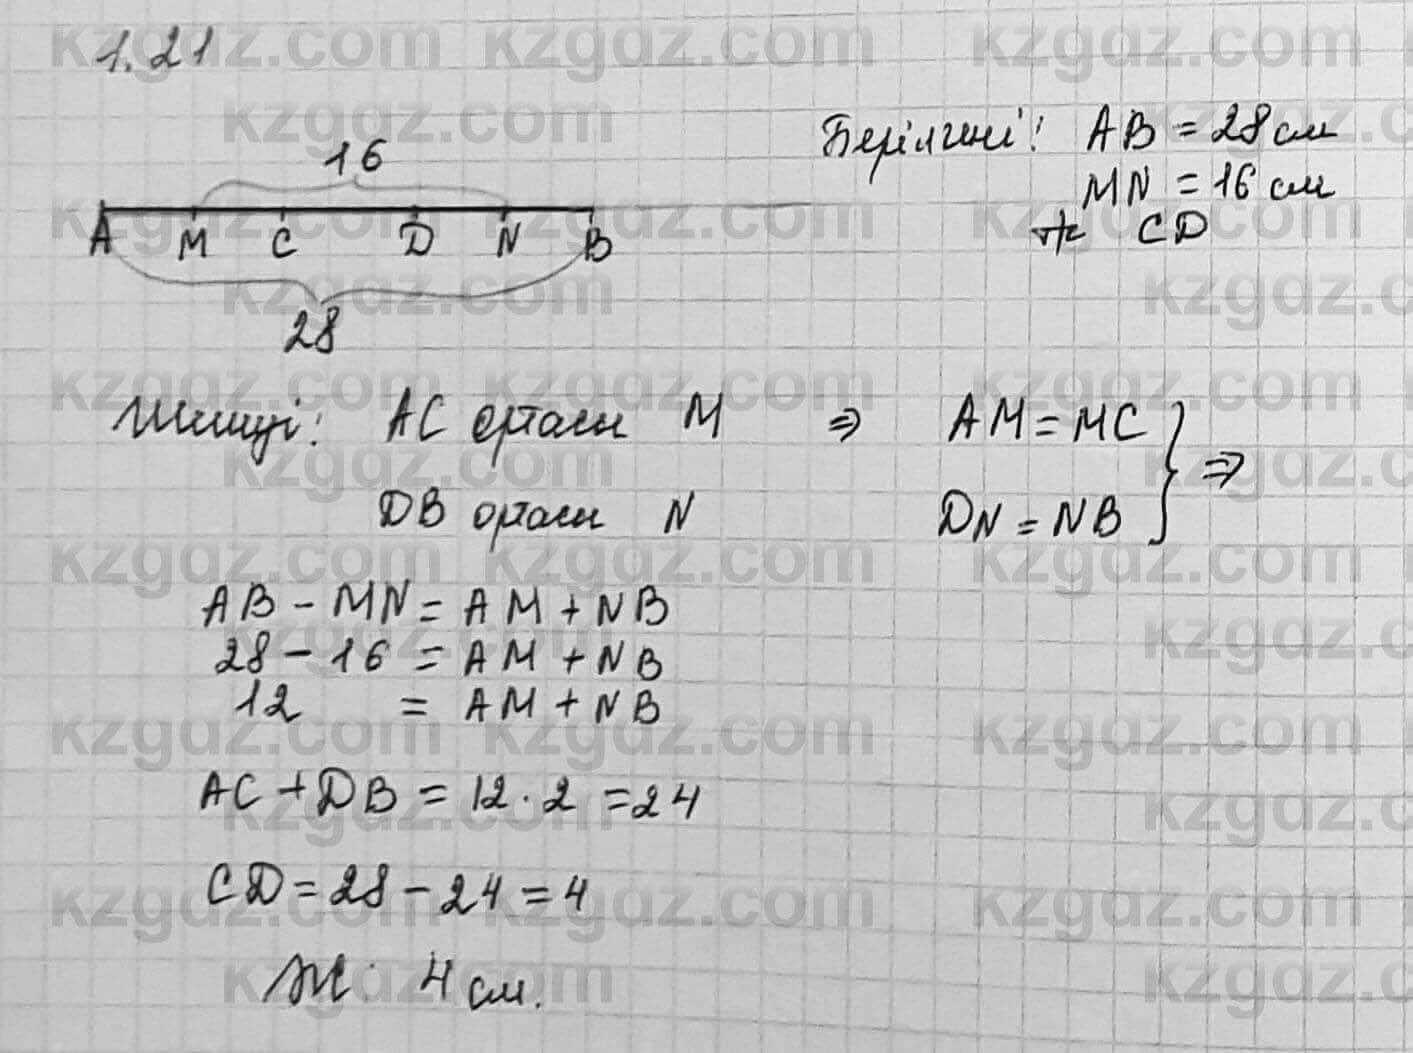 1.21
16
A M C D N B
28
Берілгені: AB = 28 см
MN = 16 см
т/к CD
Шешуі: AC ортасы M ⇒ AM = MC
DB ортасы N DN = NB } ⇒
AB - MN = AM + NB
28 - 16 = AM + NB
12 = AM + NB
AC + DB = 12 · 2 = 24
CD = 28 - 24 = 4
Ж: 4 см.
kzgdz.com